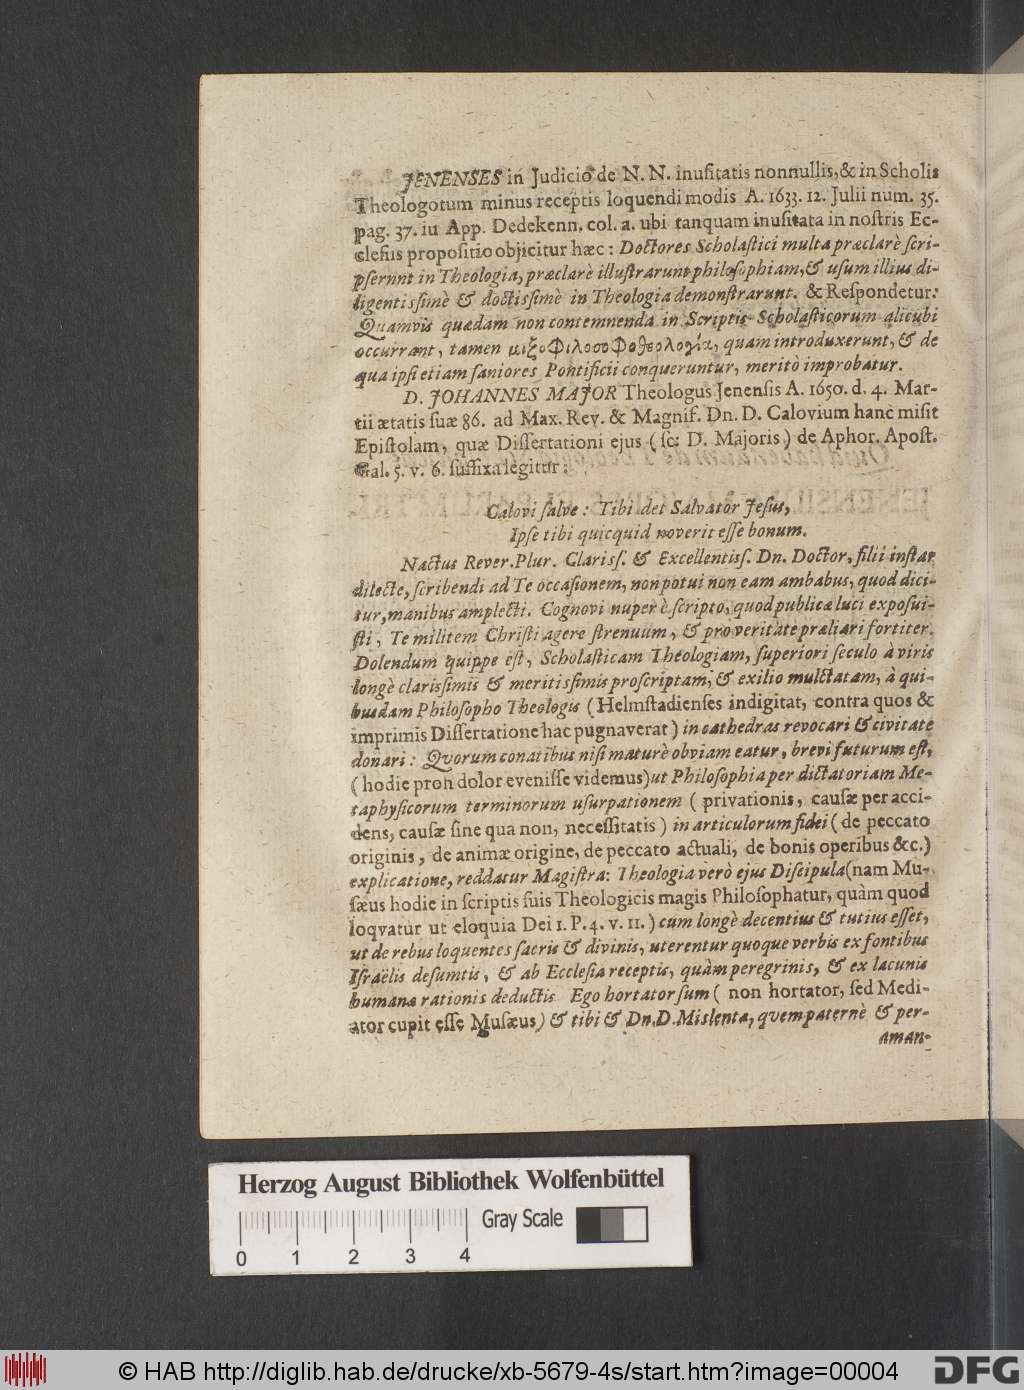 JENENSES in Judicio de N. N. inusitatis nonnullis, & in Scholis
Theologotum minus receptis loquendi modis A. 1633. 12. Julii num. 35.
pag. 37. iu App. Dedekenn. col. a. ubi tanquam inusitata in nostris Ec-
clesiis propositio objicitur hæc: Doctores Scholastici multa præclarè scri-
psernnt in Theologia, præclarè illustrarunt philosophiam, & usum illius di-
ligentissimè & doctissimè in Theologia demonstrarunt. & Respondetur:
Quamvis quædam non contemnenda in Scriptis Scholasticorum alicubi
occurrant, tamen μιξοΦιλοσοΦοθεολογία, quam introduxerunt, & de
qua ipsi etiam saniores Pontificii conqueruntur, meritò improbatur.
D. JOHANNES MAJOR Theologus Jenensis A. 1650. d. 4. Mar-
tii ætatis suæ 86. ad Max. Rev. & Magnif. Dn. D. Calovium hanc misit
Epistolam, quæ Dissertationi ejus (sc: D. Majoris) de Aphor. Apost.
Gal. 5. v. 6. suffixa legitur:
Calovi salve: Tibi det Salvator Jesus,
Ipse tibi quicquid noverit esse bonum.
Nactus Rever. Plur. Clariss. & Excellentiss. Dn. Doctor, filii instar
dilecte, scribendi ad Te occasionem, non potui non eam ambabus, quod dici-
tur, manibus amplecti. Cognovi nuper è scripto, quod publicæ luci exposui-
sti, Te militem Christi agere strenuum, & pro veritate præliari fortiter.
Dolendum quippe est, Scholasticam Theologiam, superiori seculo à viris
longè clarissimis & meritissimis proscriptam, & exilio mulctatam, à qui-
busdam Philosopho Theologis (Helmstadienses indigitat, contra quos &
imprimis Dissertatione hac pugnaverat) in cathedras revocari & civitate
donari: Qvorum conatibus nisi maturè obviam eatur, brevi futurum est,
(hodie proh dolor evenisse videmus) ut Philosophia per dictatoriam Me-
taphysicorum terminorum usurpationem (privationis, causæ per acci-
dens, causæ sine qua non, necessitatis) in articulorum fidei (de peccato
originis, de animæ origine, de peccato actuali, de bonis operibus &c.)
explicatione, reddatur Magistra: Theologia verò ejus Discipula (nam Mu-
sæus hodie in scriptis suis Theologicis magis Philosophatur, quàm quod
loqvatur ut eloquia Dei 1. P. 4. v. 11.) cum longè decentius & tutius esset,
ut de rebus loquentes sacris & divinis, uterentur quoque verbis ex fontibus
Israëlis desumtis, & ab Ecclesia receptis, quàm peregrinis, & ex lacunis
humanæ rationis deductis. Ego hortator sum (non hortator, sed Medi-
ator cupit esse Musæus) & tibi & Dn. D. Mislenta, qvem paternè & per-
aman-
Herzog August Bibliothek Wolfenbüttel
Gray Scale
0 1 2 3 4
© HAB http://diglib.hab.de/drucke/xb-5679-4s/start.htm?image=00004
DFG